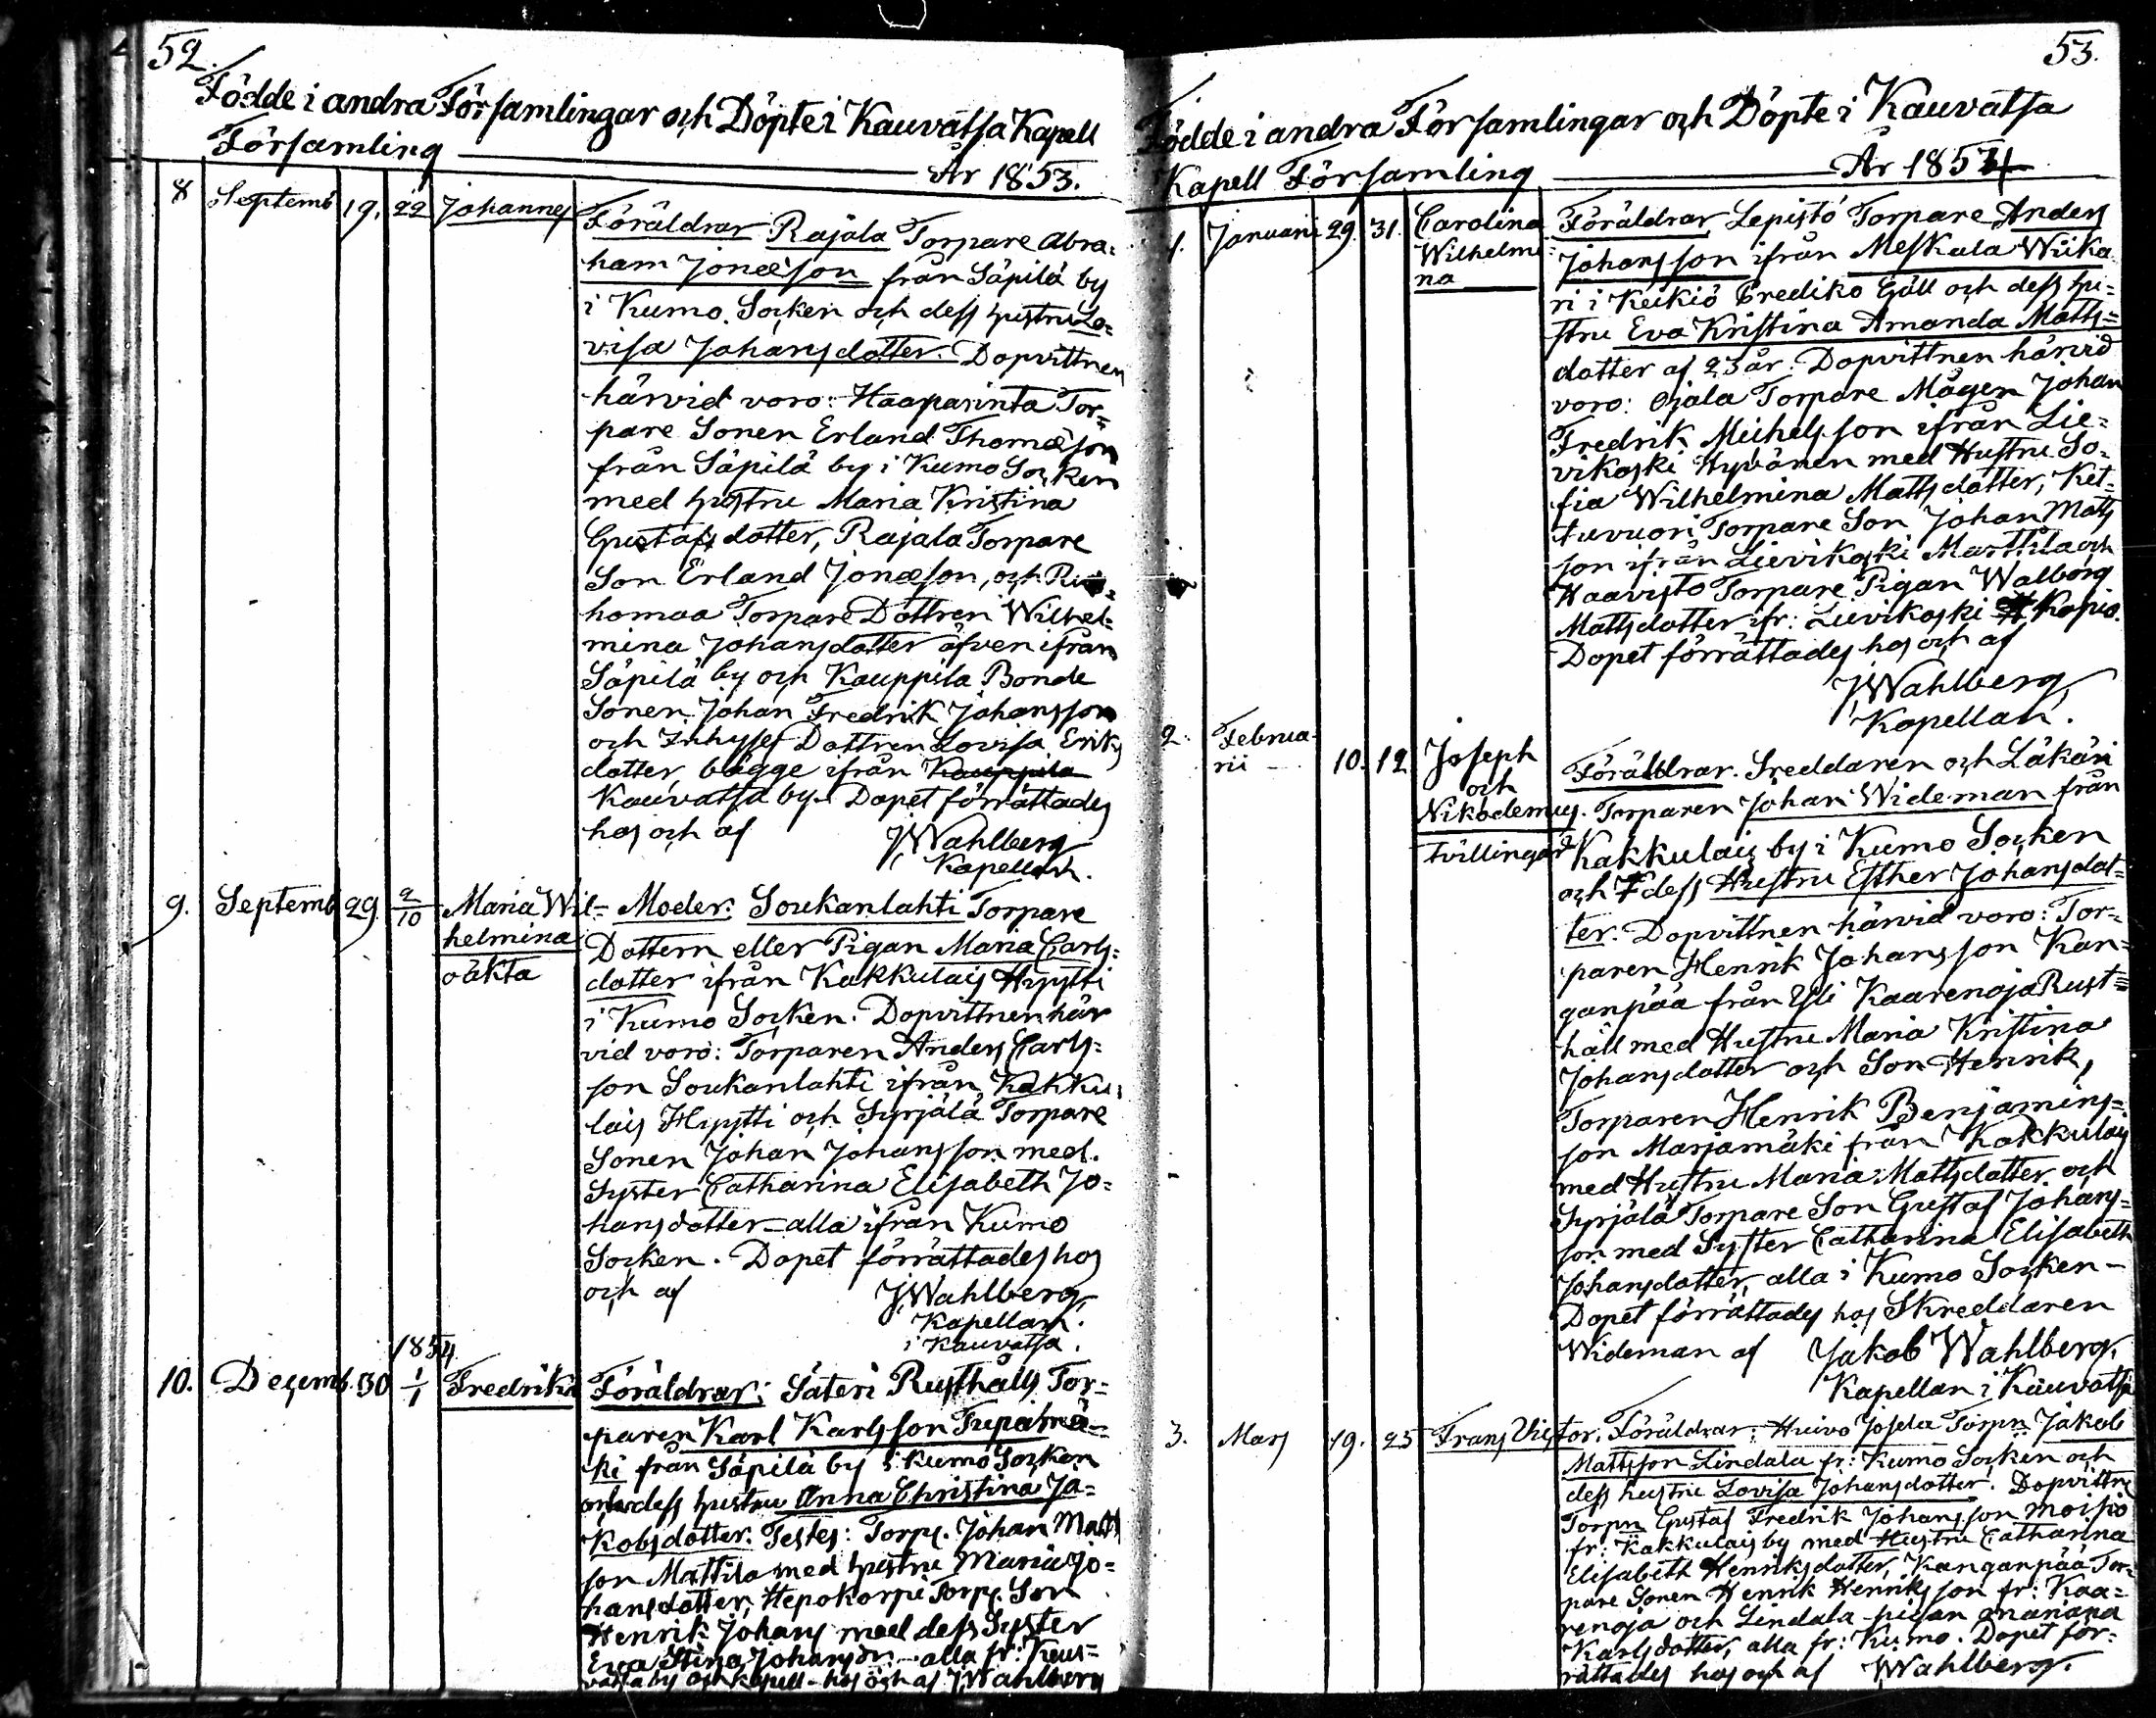 52.
Födde i andra Församlingar och Döpte i Kauvatsa Kapell
Församling År 1853.
8 Septemb 19. 22 Johannes
Föräldrar Rajala Torpare Abra-
ham Jonæson från Säpilä by
i Kumo Socken och dess hustru Lo-
visa Johansdotter. Dopvittnen
härvid voro: Haaparinta Tor-
pare Sonen Erland Thomæson
från Säpilä by i Kumo Socken
med hustru Maria Kristina
Gustafsdotter, Rajala Torpare
Son Erland Jonæson, och
homaa Torpare Dottren Wilhel-
mina Johansdotter äfven ifrån
Säpilä by och Kauppila Bonde
Sonen Johan Fredrik Johansson
och Inhyses Dottren Lovisa Eriks
dotter bägge ifrån Kauppila
Kauvatsa by. Dopet förrättades
hos och af JWahlberg
Kapellan.
9. Septemb 29 2/10 Maria Wil-
helmina
oäkta
Moder: Soukanlahti Torpare
Dottern eller Pigan Maria Carls-
dotter ifrån Kakkulais Hyytti
i Kumo Socken. Dopvittnen här
vid voro: Torparen Anders Carls-
son Soukanlahti ifrån Kakku-
lais Hyytti och Syrjälä Torpare
Sonen Johan Johansson med
Syster Catharina Elisabeth Jo-
hansdotter alla ifrån Kumo
Socken. Dopet förrättades hos
och af JWahlberg
Kapellan.
i Kauvatsa.
1854
10. Decemb. 30 1/1 Fredrika
Föräldrar: Säteri Rusthålls Tor-
paren Karl Karlsson Trepaimä-
ki från Säpilä by i Kumo Socken
och dess hustru Anna Christina Ja-
kobsdotter. Testes: Torp. Johan Matts
son Mattila med hustru Maria Jo-
hansdotter, Hepokorpi Torp. Son
Henrik Johans med dess Syster
Eva Stina Johansdr. alla fr: Kau-
vatsa by och kapell - hos och af JWahlberg
53.
Födde i andra Församlingar och Döpte i Kauvatsa
Kapell Församling År 1854
1. Januari 29. 31. Carolina
Wilhelmi-
na
Föräldrar Lepistö Torpare Anders
Johansson ifrån Meskala Wiika
ri i Keikiö Prediko Gäll och dess hu-
stru Eva Kristina Amanda Matts-
dotter af 23 år. Dopvittnen härvid
voro: Ojala Torpare Mågen Johan
Fredrik Michelsson ifrån Lie-
vikoski Hyvönen med Hustru So-
fia Wilhelmina Mattsdotter, Ket-
tuvuori Torpare Son Johan Matts
son ifrån Lievikoski Marttila och
Haavisto Torpare Pigan Walborg
Mattsdotter ifr: Lievikoski
Dopet förrättades hos och af
JWahlberg
Kapellan.
2. Februa-
rii 10. 12 Joseph
och
Nikodemus.
tvillingar
Föräldrar. Sreddaren och Läkäri
Torparen Johan Wideman från
Kakkulais by i Kumo Socken
och dess Hustru Esther Johansdot-
ter. Dopvittnen härvid voro: Tor-
paren Henrik Johansson Kan-
ganpää från Yli Kaarenoja Rust-
håll med Hustru Maria Kristina
Johansdotter och Son Henrik,
Torparen Henrik Benjamins-
son Marjamäki från Kakkulais
med Hustru Maria Mattsdotter och
Syrjälä Torpare Son Gustaf Johans-
son med Syster Catharina Elisabeth
Johansdotter, alla i Kumo Socken -
Dopet förrättades hos Skreddaren
Wideman af Jakob Wahlberg.
Kapellan i Kauvatsa
3. Mars 19. 25 Frans Victor.
Föräldrar: Huivo Josela Torpn Jakob
Mattsson Lindala fr: Kumo Socken och
dess hustru Lovisa Johansdotter. Dopvittne
Torpn Gustaf Fredrik Johansson Moisio
fr: Kakkulais by med Hustru Catharina
Elisabeth Henriksdotter, Kanganpää Tor-
pare Sonen Henrik Henriksson fr: Kaa-
renoja och Lindala pigan
Karlsdotter, alla fr: Kumo. Dopet för-
rättades hos och af Wahlberg.